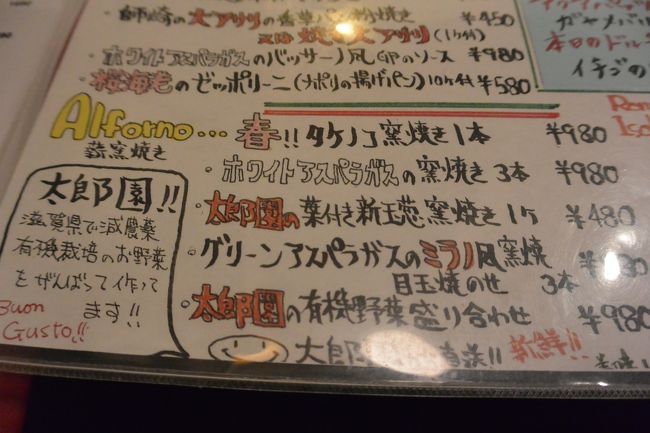 師崎の大アサリの香草パン粉焼き ¥450
又は 焼き大アサリ (1ヶ付)
・ホワイトアスパラガスのバッサーノ風 卵のソース ¥980
・桜海老のゼッポリーニ(ナポリの揚げパン)10ヶ付 ¥580
ガメバ
本日のドル
イチゴの
Alforno... 春!! タケノコ窯焼き1本 ¥980
薪窯焼き
・ホワイトアスパラガスの窯焼き 3本 ¥980
・太郎園の葉付き新玉葱窯焼き1ヶ ¥480
・グリーンアスパラガスのミラノ風窯焼
目玉焼のせ 3本
・太郎園の有機野菜盛り合わせ ¥980
太郎 直送!! 新鮮!!
太郎園!!
滋賀県で減農薬
有機栽培のお野菜
をがんばって作って
ます!!
Buon
Gusto!!